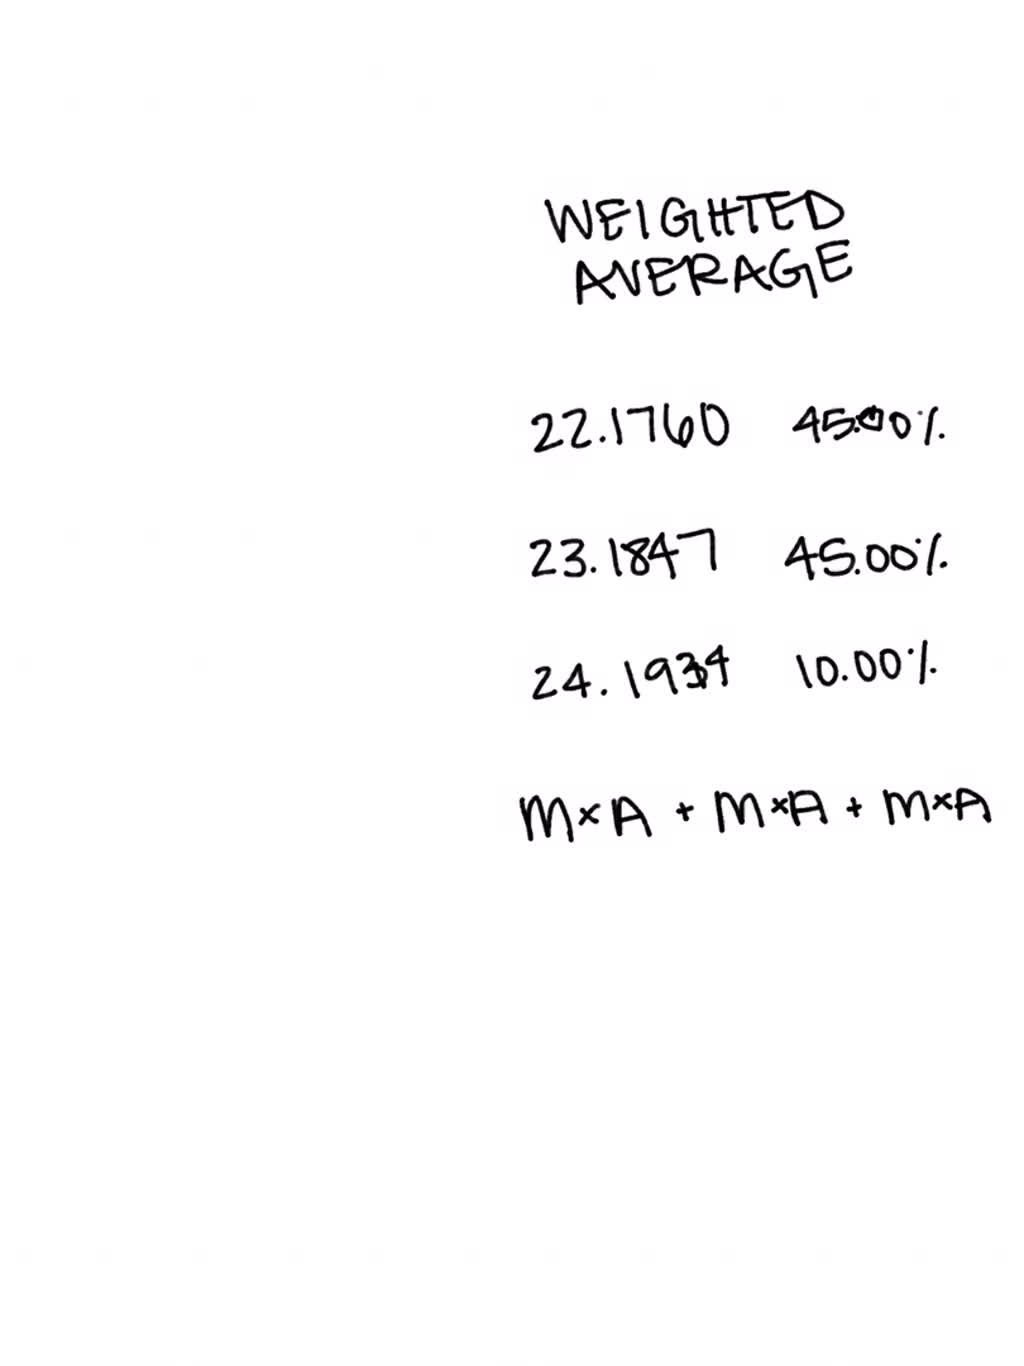 WEIGHTED
AVERAGE
22.1760 45.00%
23.1847 45.00%
24.1934 10.00%
M×A + M×A + M×A